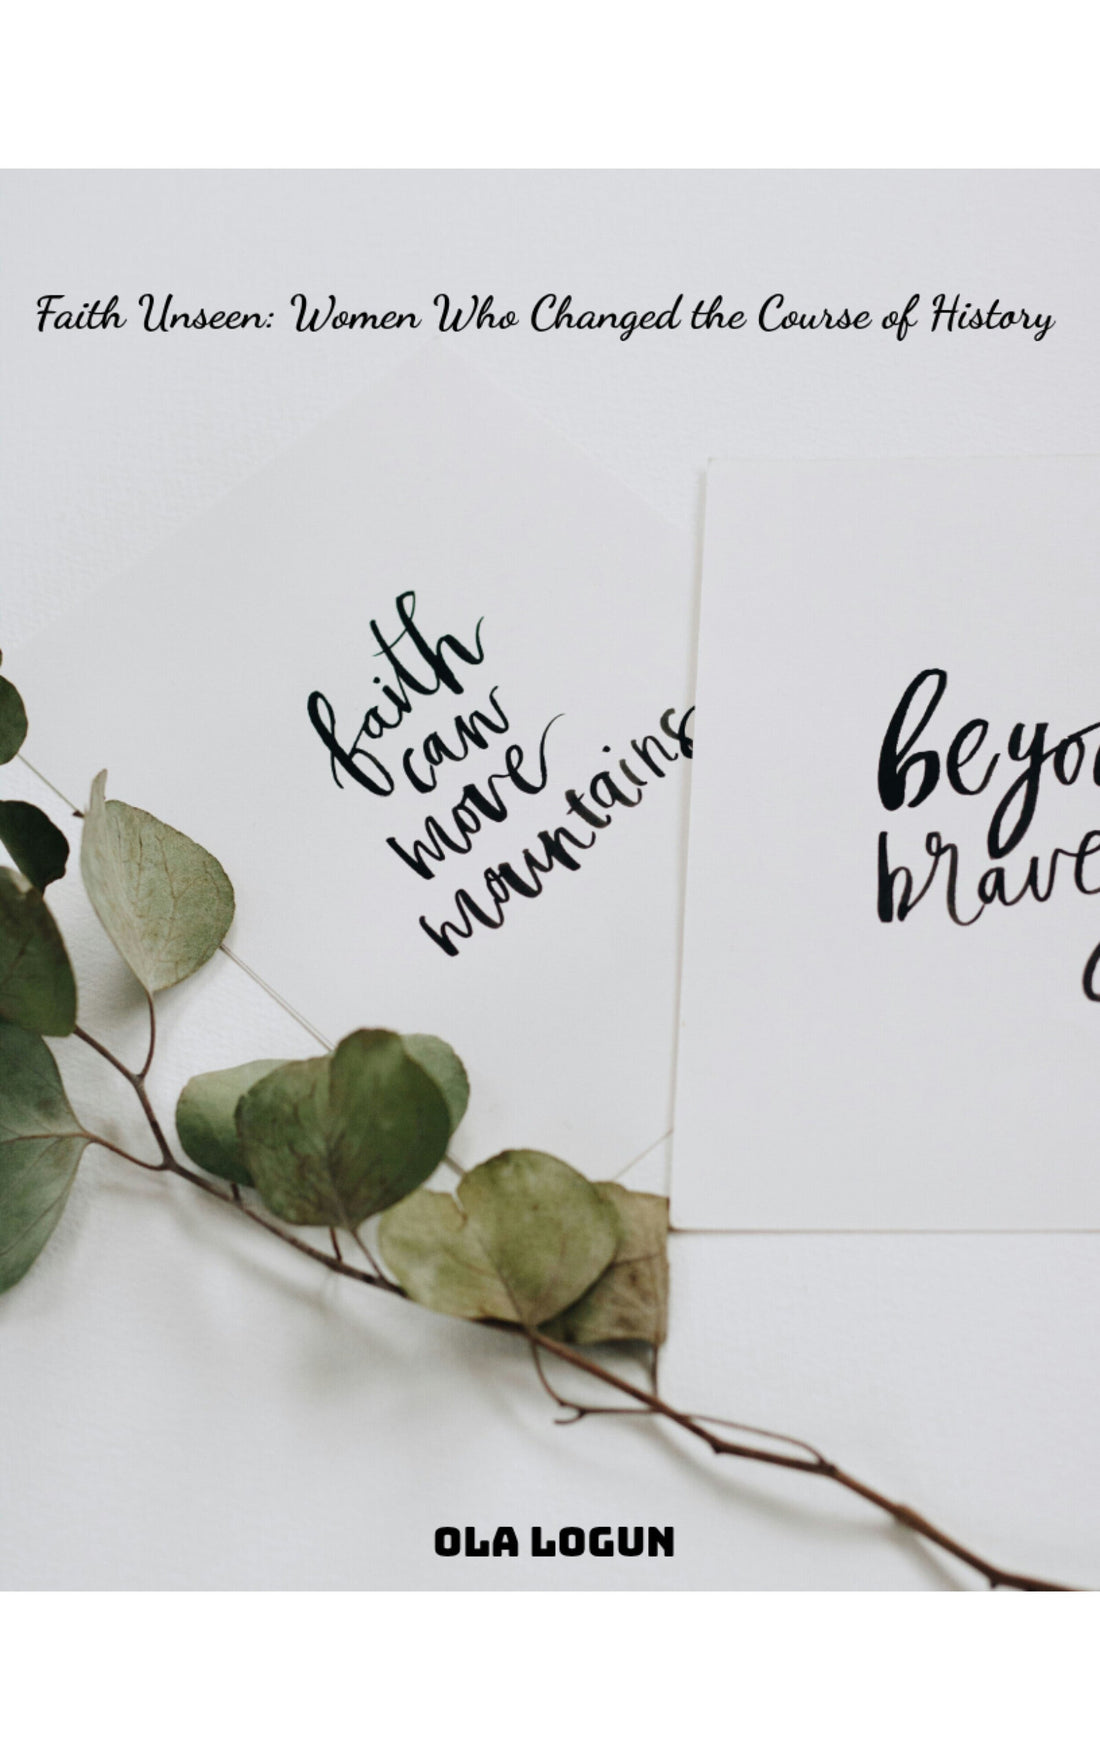 Faith Unseen: Women Who Changed the Course of History
faith
can
move
mountains
beyo
brave
OLA LOGUN